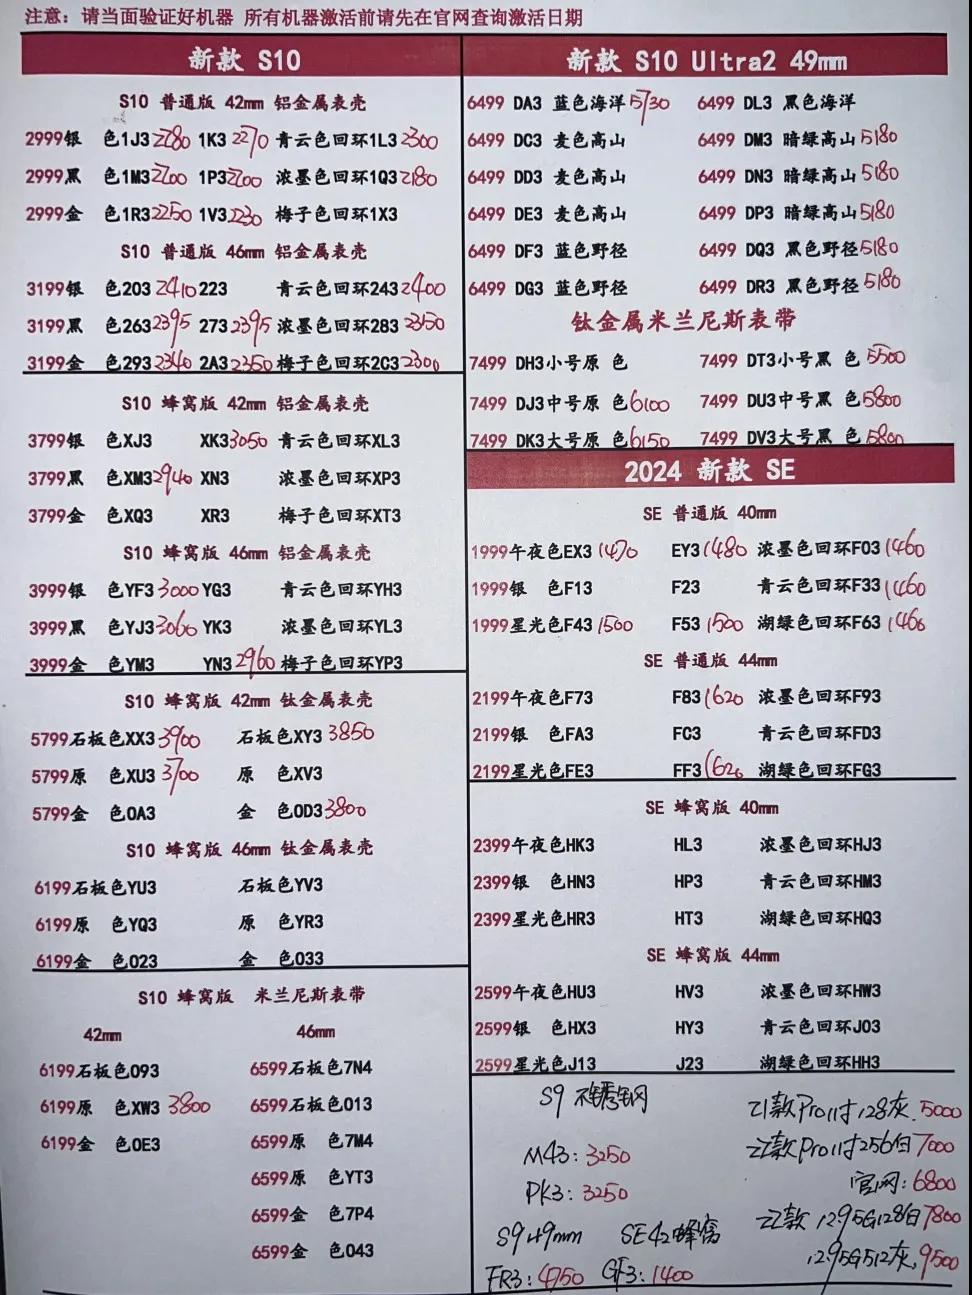 注意：请当面验证好机器 所有机器激活前请先在官网查询激活日期
新款 S10
S10 普通版 42mm 铝金属表壳
2999银 色1J3 2280 1K3 2270 青云色回环1L3 2300
2999黑 色1M3 2200 1P3 2200 浓墨色回环1Q3 2180
2999金 色1R3 2250 1V3 2230 梅子色回环1X3
S10 普通版 46mm 铝金属表壳
3199银 色203 2410 223 青云色回环243 2400
3199黑 色263 2395 273 2395 浓墨色回环283 2350
3199金 色293 2340 2A3 2350 梅子色回环2C3 2300
S10 蜂窝版 42mm 铝金属表壳
3799银 色XJ3 XK3 3050 青云色回环XL3
3799黑 色XM3 2940 XN3 浓墨色回环XP3
3799金 色XQ3 XR3 梅子色回环XT3
S10 蜂窝版 46mm 铝金属表壳
3999银 色YF3 3000 YG3 青云色回环YH3
3999黑 色YJ3 3060 YK3 浓墨色回环YL3
3999金 色YM3 YN3 2960 梅子色回环YP3
S10 蜂窝版 42mm 钛金属表壳
5799石板色XX3 3900 石板色XY3 3850
5799原 色XU3 3700 原 色XV3
5799金 色0A3 金 色0D3 3800
S10 蜂窝版 46mm 钛金属表壳
6199石板色YU3 石板色YV3
6199原 色YQ3 原 色YR3
6199金 色023 金 色033
S10 蜂窝版 米兰尼斯表带
42mm 46mm
6199石板色093 6599石板色7N4
6199原 色XW3 3800 6599石板色013
6199金 色0E3 6599原 色7M4
6599原 色YT3
6599金 色7P4
6599金 色043
新款 S10 Ultra2 49mm
6499 DA3 蓝色海洋 5730 6499 DL3 黑色海洋
6499 DC3 麦色高山 6499 DM3 暗绿高山 5180
6499 DD3 麦色高山 6499 DN3 暗绿高山 5180
6499 DE3 麦色高山 6499 DP3 暗绿高山 5180
6499 DF3 蓝色野径 6499 DQ3 黑色野径 5180
6499 DG3 蓝色野径 6499 DR3 黑色野径 5180
钛金属米兰尼斯表带
7499 DH3小号原 色 7499 DT3小号黑 色 5500
7499 DJ3中号原 色 6100 7499 DU3中号黑 色 5800
7499 DK3大号原 色 6150 7499 DV3大号黑 色 5800
2024 新款 SE
SE 普通版 40mm
1999午夜色EX3 1470 EY3 1480 浓墨色回环F03 1460
1999银 色F13 F23 青云色回环F33 1460
1999星光色F43 1500 F53 1500 湖绿色回环F63 1466
SE 普通版 44mm
2199午夜色F73 F83 1620 浓墨色回环F93
2199银 色FA3 FC3 青云色回环FD3
2199星光色FE3 FF3 1620 湖绿色回环FG3
SE 蜂窝版 40mm
2399午夜色HK3 HL3 浓墨色回环HJ3
2399银 色HN3 HP3 青云色回环HM3
2399星光色HR3 HT3 湖绿色回环HQ3
SE 蜂窝版 44mm
2599午夜色HU3 HV3 浓墨色回环HW3
2599银 色HX3 HY3 青云色回环J03
2599星光色J13 J23 湖绿色回环HH3
S9 不锈钢网
M43: 3250
PK3: 3250
S9 49mm SE42蜂窝
FR3: 4750 GF3: 1400
21款Pro11寸128灰. 5000
22款Pro11寸256白 7000
官网: 6800
22款 12.95G128白 7800
12.95G512灰. 9500